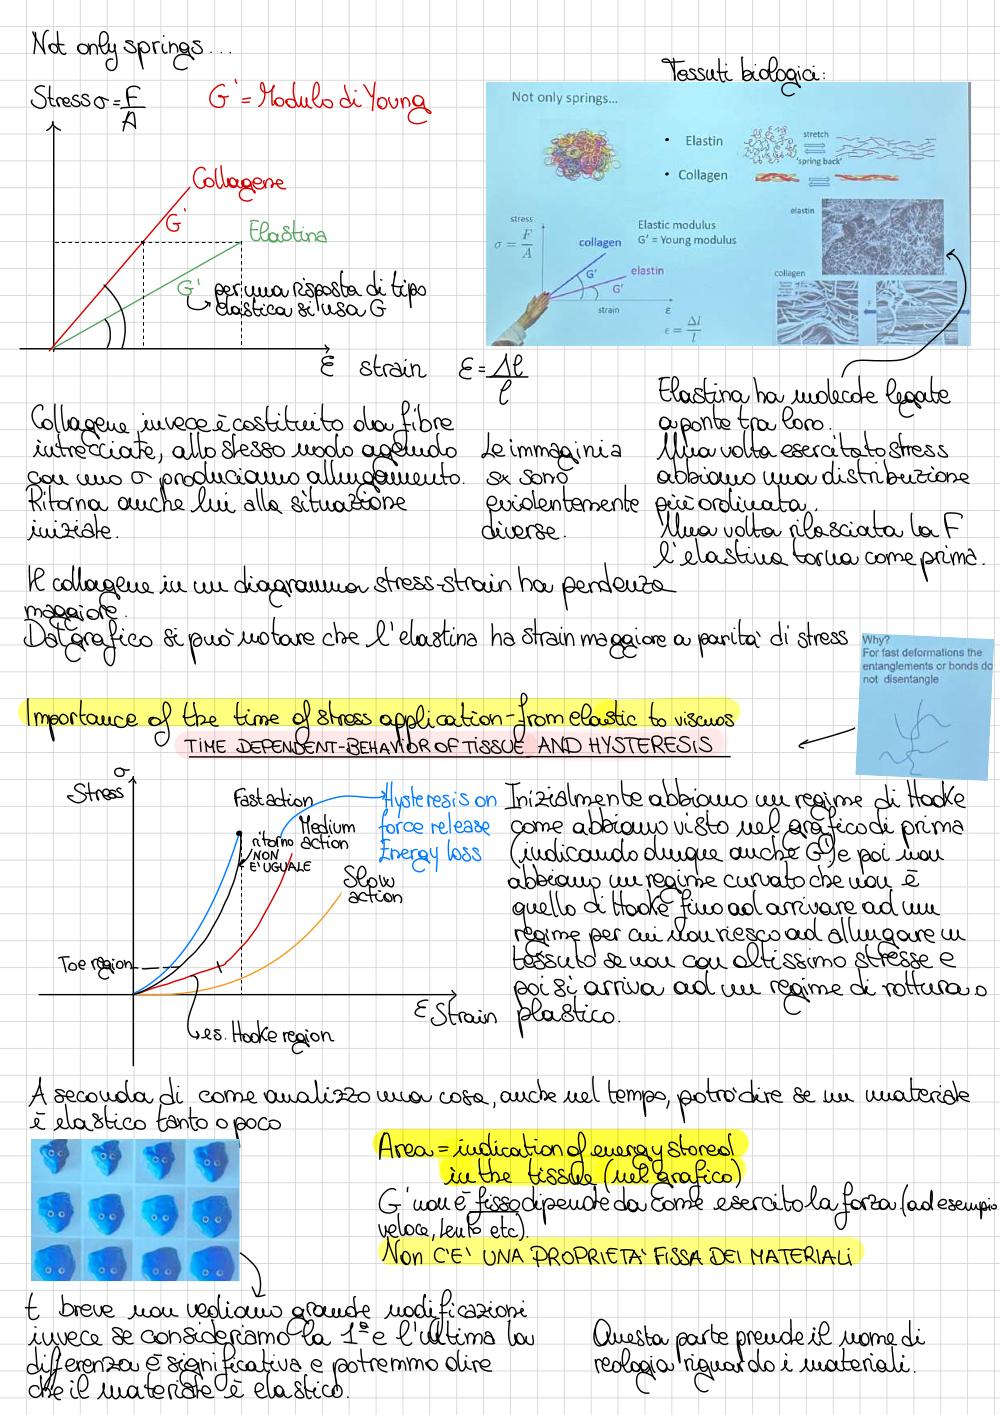 Not only springs...
Stress σ = F/A
G' = Modulo di Young
Collagene
G'
Elastina
G' per una risposta di tipo
elastica si usa G
ε strain ε = Δl/l
Tessuti biologici:
Not only springs...
• Elastin
stretch
'spring back'
• Collagen
stress
σ = F/A
Elastic modulus
G' = Young modulus
collagen
elastin
G'
G'
strain
ε
ε = Δl/l
elastin
collagen
F
Collagene invece è costituito da fibre
intrecciate, allo stesso modo agendo
con uno σ produciamo allungamento.
Ritorna anche lui alla situazione
iniziale.
Le immagini a
sx sono
evidentemente
diverse.
Elastina ha molecole legate
a ponte tra loro.
Una volta esercitato stress
abbiamo una distribuzione
più ordinata.
Una volta rilasciata la F
l'elastina torna come prima.
Il collagene in un diagramma stress-strain ha pendenza
maggiore.
Dal grafico si può notare che l'elastina ha strain maggiore a parità di stress
Why?
For fast deformations the
entanglements or bonds do
not disentangle
Importance of the time of stress application - from elastic to viscuos
TIME DEPENDENT-BEHAVIOR OF TISSUE AND HYSTERESIS
σ
Stress
Fast action
Hysteresis on
force release
Energy loss
ritorno
NON
E' UGUALE
Medium
action
Slow
action
Toe region
ε Strain
es. Hooke region
Inizialmente abbiamo un regime di Hooke
come abbiamo visto nel grafico di prima
(indicando dunque anche G') e poi non
abbiamo un regime curvato che non è
quello di Hooke fino ad arrivare ad un
regime per cui non riesco ad allungare un
tessuto se non con altissimo stresse e
poi si arriva ad un regime di rottura o
plastico.
A seconda di come analizzo una cosa, anche nel tempo, potrò dire se un materiale
è elastico tanto o poco
Area = indication of energy stored
in the tissue (nel grafico)
G' non è fisso dipende da come esercito la forza (ad esempio
veloce, lento etc).
Non C'E' UNA PROPRIETA' FISSA DEI MATERIALI
t breve non vediamo grande modificazioni
invece se consideriamo la 1ª e l'ultima la
differenza è significativa e potremmo dire
che il materiale è elastico.
Questa parte prende il nome di
reologia riguardo i materiali.